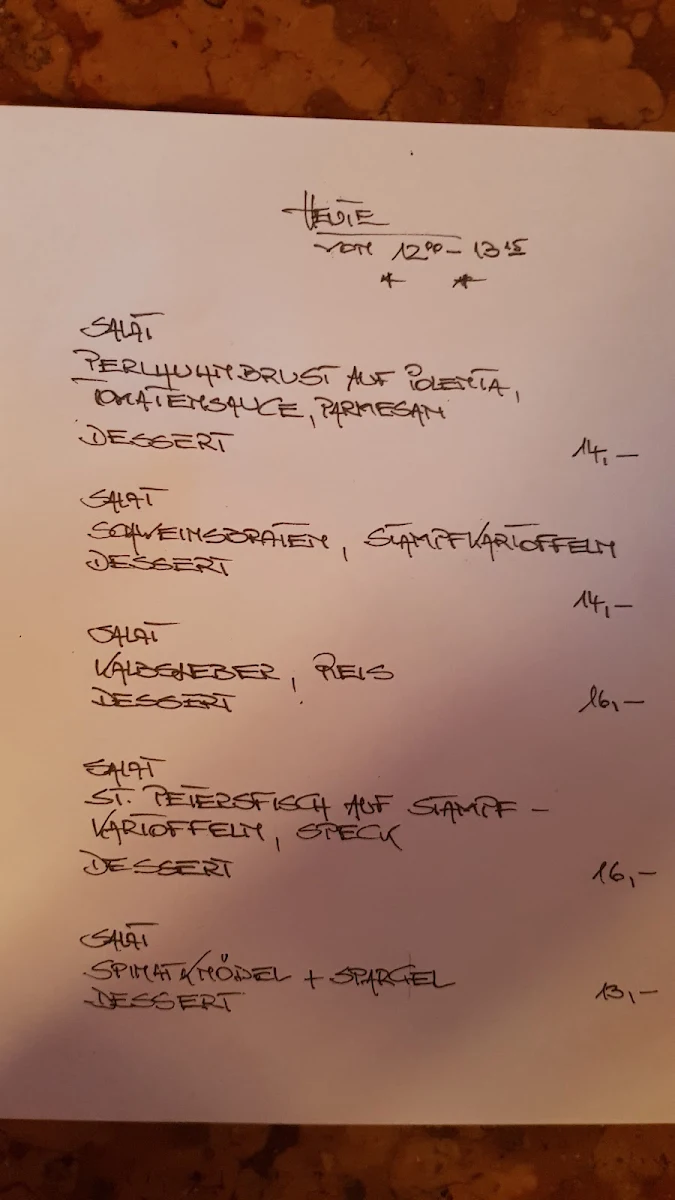 HEUTE
VOM 12⁰⁰ - 13¹⁵
* *
SALAT
PERLHUHNBRUST AUF POLENTA,
TOMATENSAUCE, PARMESAN
DESSERT 14,-
SALAT
SCHWEINSBRATEN, STAMPFKARTOFFELN
DESSERT
14,-
SALAT
KALBSLEBER, REIS
DESSERT 16,-
SALAT
ST. PETERSFISCH AUF STAMPF-
KARTOFFELN, SPECK
DESSERT 16,-
SALAT
SPINATKNÖDEL + SPARGEL
DESSERT 13,-